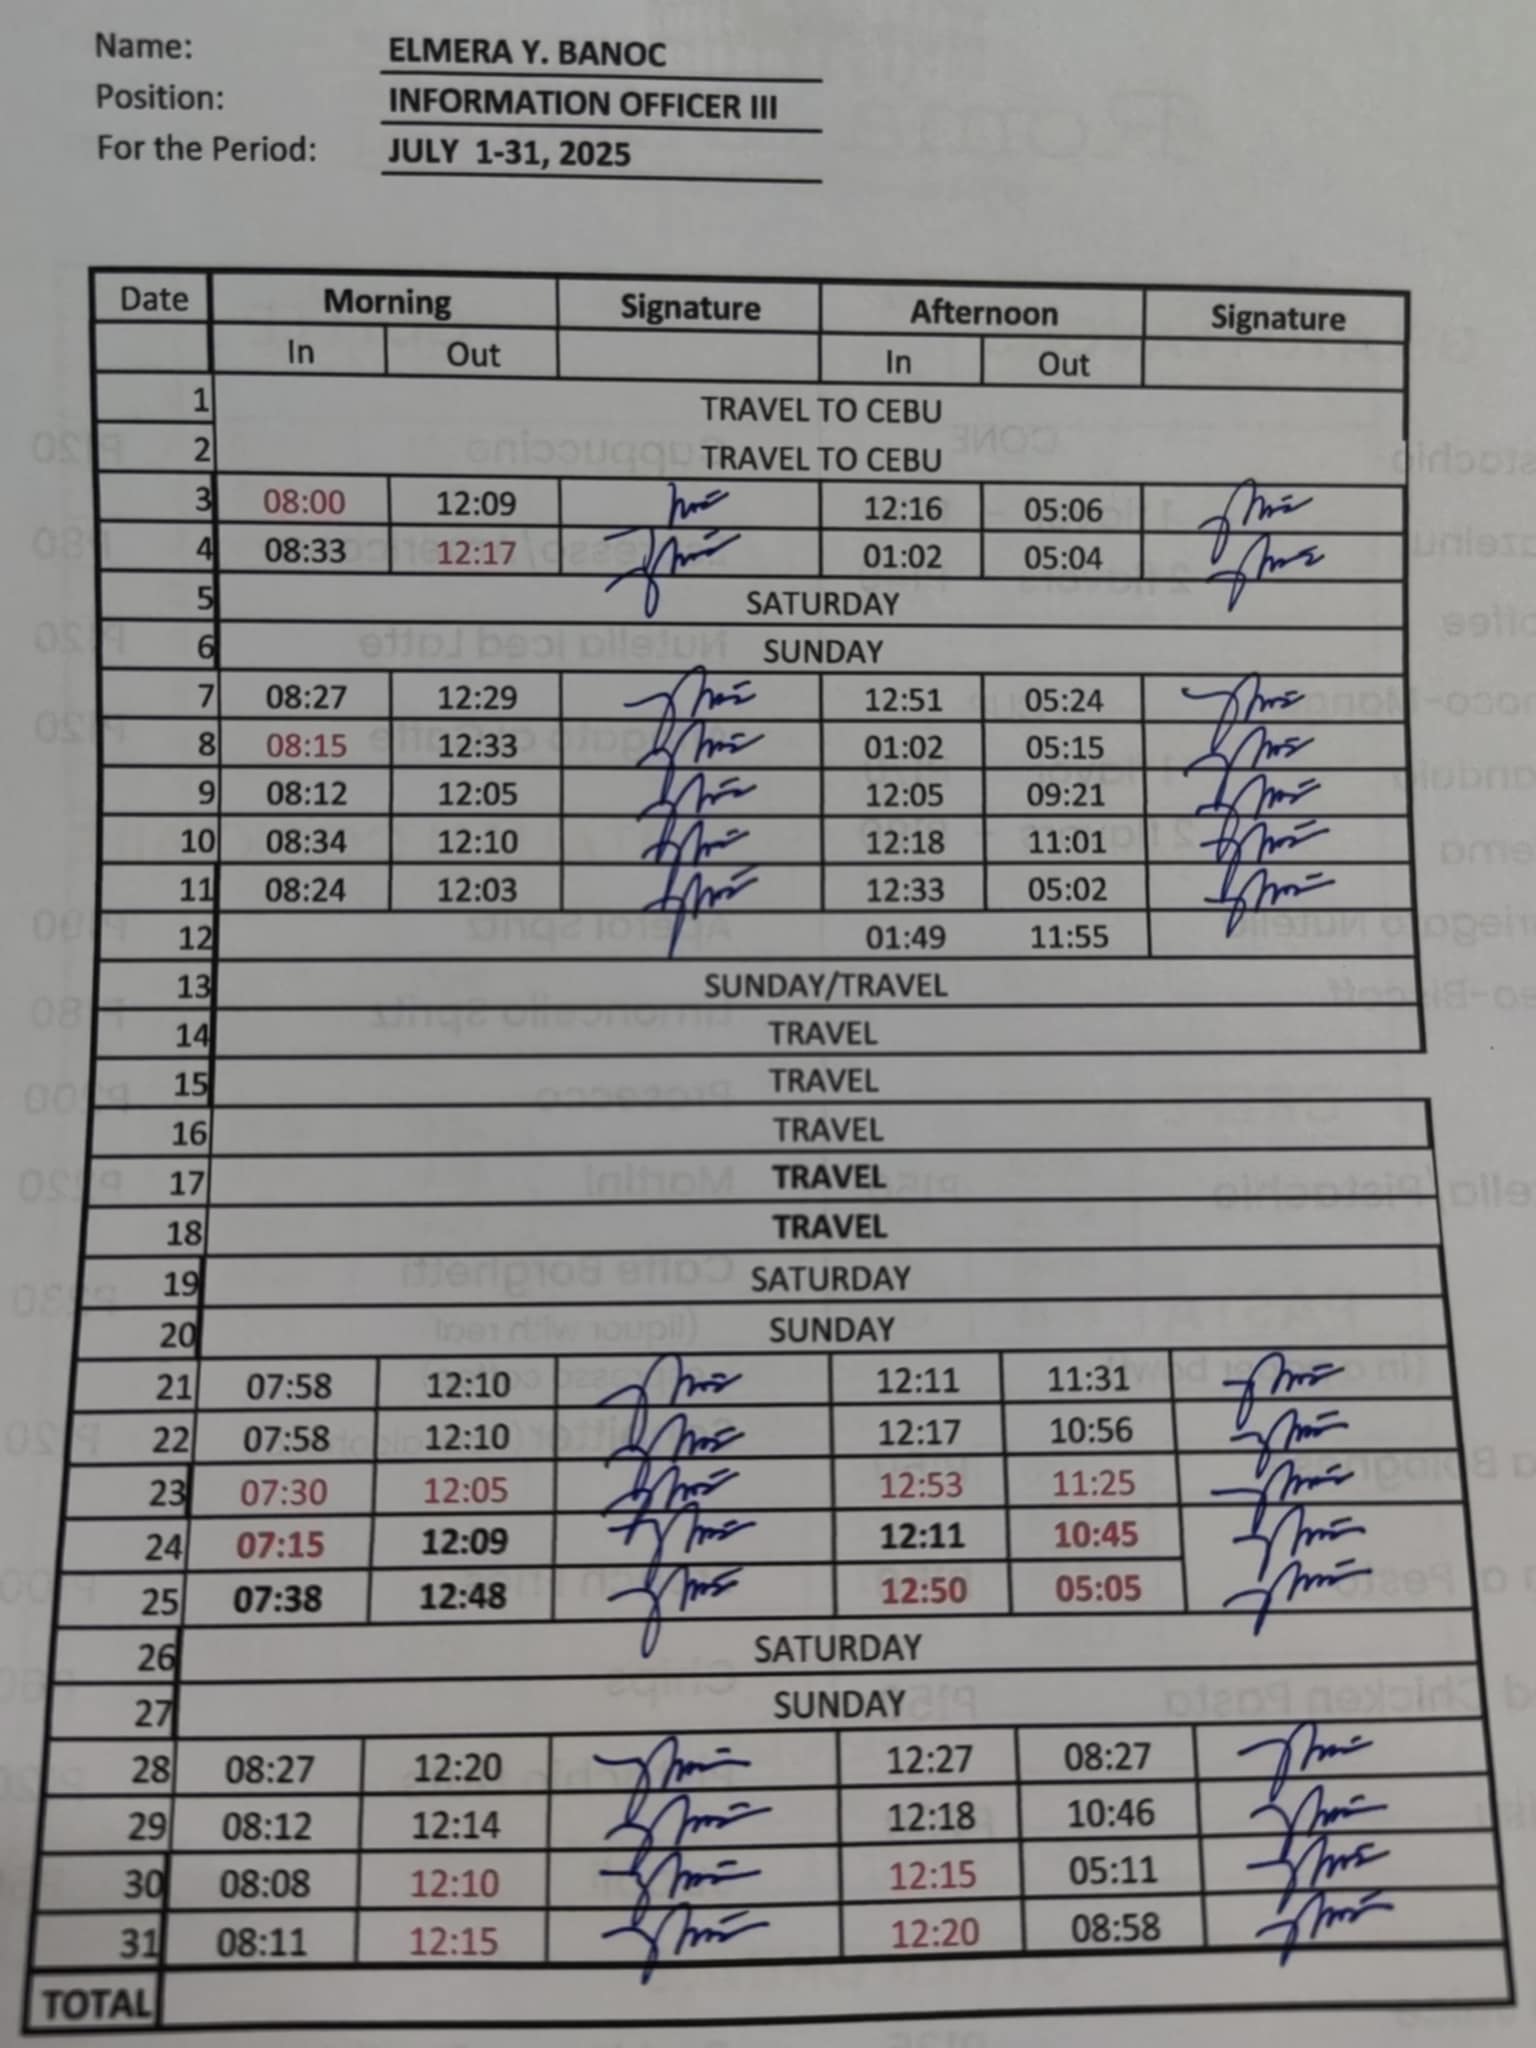 Name: ELMERA Y. BANOC
Position: INFORMATION OFFICER III
For the Period: JULY 1-31, 2025
Date Morning Signature Afternoon Signature
In Out In Out
1 TRAVEL TO CEBU
2 TRAVEL TO CEBU
3 08:00 12:09 12:16 05:06
4 08:33 12:17 01:02 05:04
5 SATURDAY
6 SUNDAY
7 08:27 12:29 12:51 05:24
8 08:15 12:33 01:02 05:15
9 08:12 12:05 12:05 09:21
10 08:34 12:10 12:18 11:01
11 08:24 12:03 12:33 05:02
12 01:49 11:55
13 SUNDAY/TRAVEL
14 TRAVEL
15 TRAVEL
16 TRAVEL
17 TRAVEL
18 TRAVEL
19 SATURDAY
20 SUNDAY
21 07:58 12:10 12:11 11:31
22 07:58 12:10 12:17 10:56
23 07:30 12:05 12:53 11:25
24 07:15 12:09 12:11 10:45
25 07:38 12:48 12:50 05:05
26 SATURDAY
27 SUNDAY
28 08:27 12:20 12:27 08:27
29 08:12 12:14 12:18 10:46
30 08:08 12:10 12:15 05:11
31 08:11 12:15 12:20 08:58
TOTAL